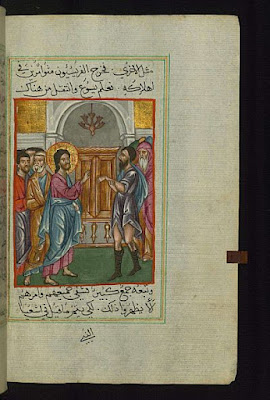 مثل الاخري فخرج الفريسيون متوامرين في
اهلاكه فعلم يسوع وانتقل من هناك
وتبعه جمع كبير فشفى جميعهم وامرهم
لا يظهروا ذلك لكي يتم ما قيل في اشعيا
النبي